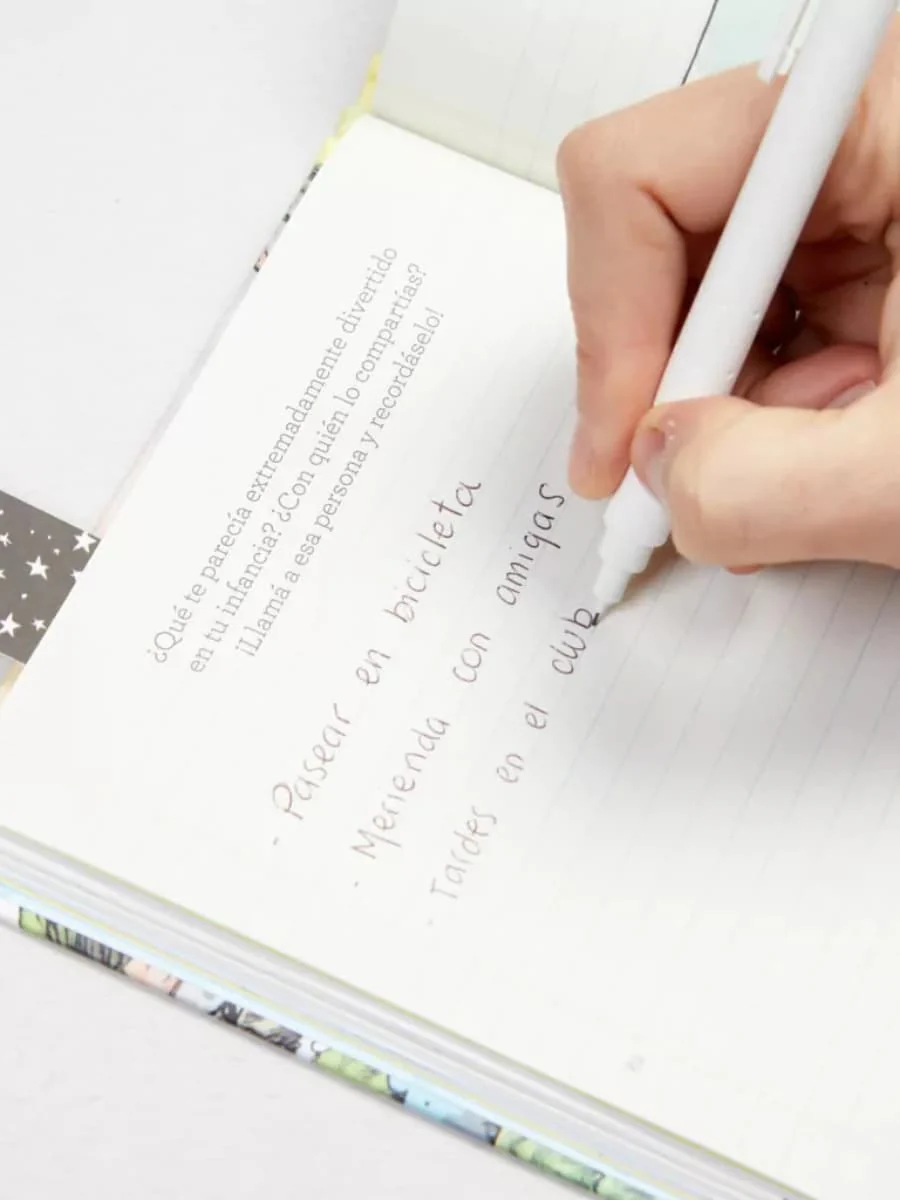 ¿Qué te parecía extremadamente divertido
en tu infancia? ¿Con quién lo compartías?
¡Llamá a esa persona y recordáselo!
- Pasear en bicicleta
- Merienda con amigas
- Tardes en el club